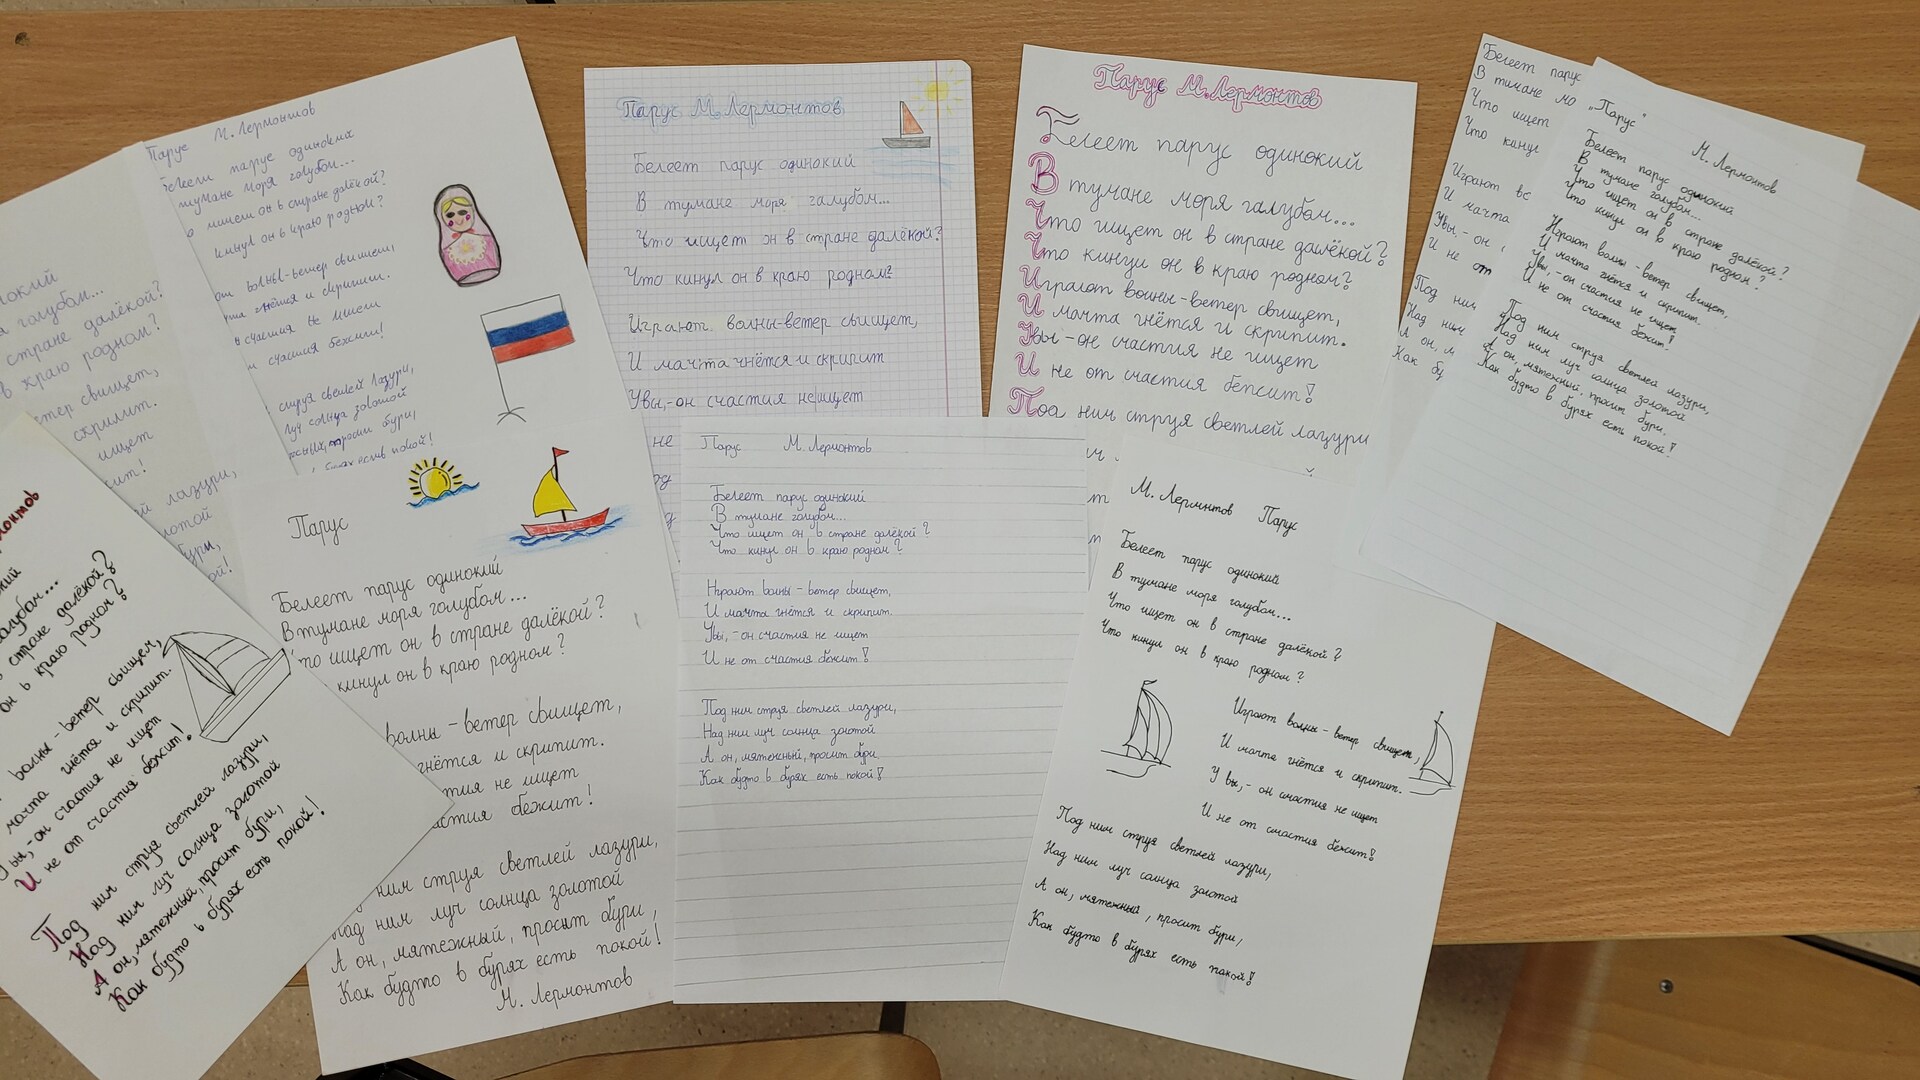 окий
а голубом...
стране далёкой?
в краю родном?
етер свищет,
скрипит.
ищет
ит!
ей лазури,
отой
бури,
ой!
Парус М. Лермонтов
Белеели парус одиноких
тумане моря голубом...
о ищет он в стране далёкой?
кинул он в краю родном?
волны-ветер свищет,
гнётся и скрипит.
счастия не ищет
счастия бежит!
струя светлей лазури,
луч солнца золотой
просит бури,
октов
кий
голубом...
стране далёкой?
он в краю родном?
волны-ветер свищет,
мачта гнётся и скрипит.
Увы,-он счастия не ищет
И не от счастия бежит!
Под ним струя светлей лазури,
Над ним луч солнца золотой
А он, мятежный, просит бури,
Как будто в бурях есть покой!
Парус
Белеет парус одинокий
В тумане моря голубом...
то ищет он в стране далёкой?
кинул он в краю родном?
волны-ветер свищет,
гнётся и скрипит.
тия не ищет
астия бежит!
ним струя светлей лазури,
Над ним луч солнца золотой
А он, мятежный, просит бури,
Как будто в бурях есть покой!
М. Лермонтов
Парус М. Лермонтов
Белеет парус одинокий
В тумане моря галубом...
Что ищет он в стране далёкой?
Что кинул он в краю родном?
Играют волны-ветер свищет,
И мачта чнётся и скрипит
Увы,-он счастия не ищет
не
Парус М. Лермонтов
Белеет парус одинокий
В тумане голубом...
Что ищет он в стране далёкой?
Что кинул он в краю родном?
Играют волны-ветер свищет,
И мачта гнётся и скрипит
Увы,-он счастия не ищет
И не от счастия бежит!
Под ним струя светлей лазури,
Над ним луч солнца золотой
А он, мятежный, просит бури
Как будто в бурях есть покой!
Парус М. Лермонтов
Белеет парус одинокий
В тумане моря галубом...
Что ищет он в стране далёкой?
Что кинул он в краю родном?
Играют волны-ветер свищет,
И мачта гнётся и скрипит.
Увы-он счастия не ищет
И не от счастия бепсит!
Поа ним струя светлей лазури
М. Лермнтов Парус
Белеет парус одинокий
В тумане моря голубом...
Что ищет он в стране далёкой?
Что кинул он в краю родном?
Играют волны-ветер свищет,
И мачта гнётся и скрипит.
У вы,-он счастия не ищет
И не от счастия бежит!
Под ним струя светлей лазури,
Над ним луч солнца золотой
А он, мятежный, просит бури,
Как будто в бурях есть покой!
Белеет парус
В тумане мо
Что ищет
Что кинул
Играют во
И мачта
Увы,-он
И не от
Под ним
Над ним
А он, м
Как бу
„Парус"
М. Лермонтов
Белеет парус одинокий
В тумане голубом...
Что ищет он в стране далёкой?
Что кинул он в краю родном?
Играют волны-ветер свищет,
И мачта гнётся и скрипит.
Увы,-он счастия не ищет
И не от счастия бежит!
Под ним струя светлей лазури,
Над ним луч солнца золотой
А он, мятежный, просит бури.
Как будто в бурях есть покой!